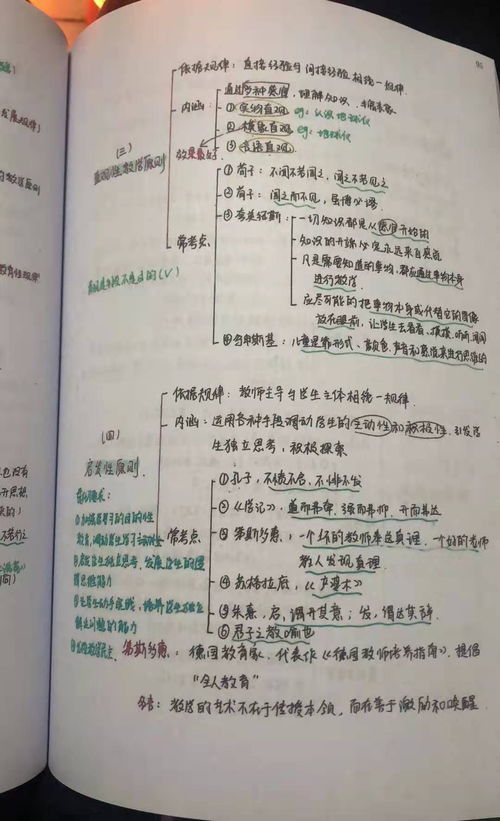 依据规律：直接经验与间接经验相统一规律
通过多种感官，理解知识
内涵：
①实物直观 eg：认识
②模象直观 eg：
③言语直观
效果最好
（三）
直观性教学原则
常考点
①荀子：不闻不若闻之，闻之不若见之
②荀子：闻之而不见，虽博必谬
③夸美纽斯：一切知识都是从感官开始的
知识的开端必定永远来自感官
凡是需要知道的事物，都应通过事物本身
进行教学
应尽可能的把事物本身或代替它的图像
放在眼前，让学生去看看、摸摸、听听、闻闻
④乌申斯基：儿童是靠形式、颜色、声音和感觉来进行思维的
直观是手段不是目的（√）
依据规律：教师主导与学生主体相统一规律
内涵：运用各种手段调动学生的主动性和积极性，引发学
生独立思考，积极探索
（四）
启发性原则
常考点
①孔子，不愤不启，不悱不发
②《学记》，道而弗牵，强而弗抑，开而弗达
③第斯多惠：一个坏的教师奉送真理，一个好的老师
教人发现真理
④苏格拉底，《产婆术》
⑤朱熹，启，谓开其意；发，谓达其辞
⑥君子之教喻也
贯彻要求：
①加强学习的目的性
教育，调动学生学习主动性
②启发学生独立思考，发展学生的逻
辑思维能力
③让学生动手实践，培养学生独立
解决问题的能力
④发扬教学民主
第斯多惠：德国教育家，代表作《德国教师培养指南》，提倡
“全人教育”
名言：教学的艺术不在于传授本领，而在于激励和唤醒